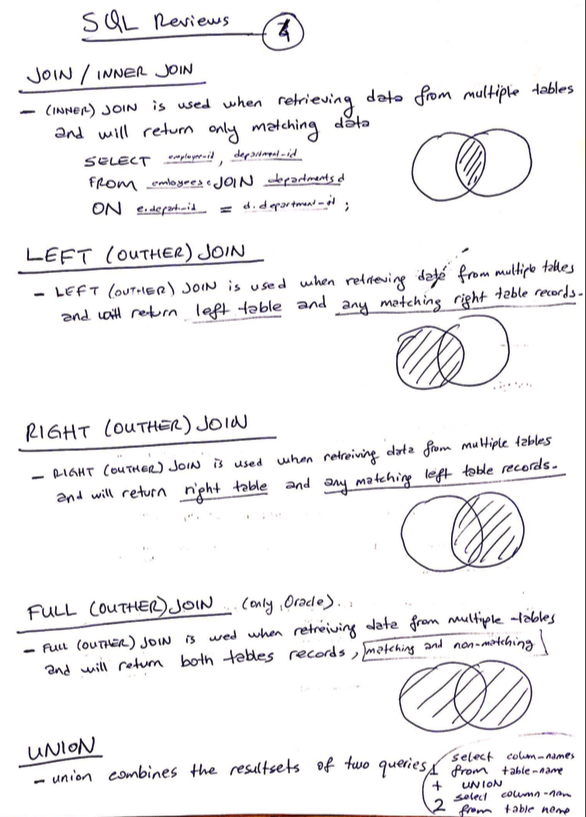 SQL Reviews 4
JOIN / INNER JOIN
- (INNER) JOIN is used when retrieving data from multiple tables
and will return only matching data
SELECT employee-id, department-id
FROM emloyees e JOIN departments d
ON e.depart-id = d.department-id ;
LEFT (OUTHER) JOIN
- LEFT (OUTHER) JOIN is used when retrieving data from multiple tables
and will return left table and any matching right table records.
RIGHT (OUTHER) JOIN
- RIGHT (OUTHER) JOIN is used when retreiving data from multiple tables
and will return right table and any matching left table records.
FULL (OUTHER) JOIN (only, Oracle).
- FULL (OUTHER) JOIN is used when retreiving data from multiple tables
and will return both tables records, matching and non-matching
UNION
- union combines the resultsets of two queries
1 select colum-names
from table-name
+ UNION
2 select column-nam
from table name